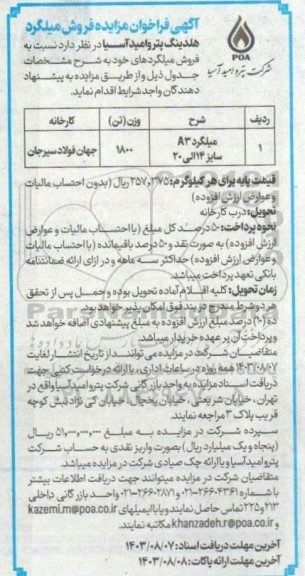 آگهی فراخوان مزایده فروش میلگرد
POA
شرکت پترو امید آسیا
هلدینگ پترو امید آسیا در نظر دارد نسبت به
فروش میلگردهای خود به شرح مشخصات
جدول ذیل و از طریق مزایده به پیشنهاد
دهندگان واجد شرایط اقدام نماید.
ردیف شرح وزن (تن) کارخانه
۱ میلگرد A۳ سایز ۱۴ الی ۲۰ ۱۸۰۰ جهان فولاد سیرجان
قیمت پایه برای هر کیلوگرم: ۲۵۷,۲۷۵ ریال (بدون احتساب مالیات
و عوارض ارزش افزوده)
تحویل: درب کارخانه
نحوه پرداخت: ۵۰ درصد کل مبلغ (با احتساب مالیات و عوارض
ارزش افزوده) به صورت نقد و ۵۰ درصد باقیمانده (با احتساب مالیات
و عوارض ارزش افزوده) حداکثر سه ماهه و در ازای ارائه ضمانتنامه
بانکی تعهد پرداخت میباشد.
زمان تحویل: کلیه اقلام آماده تحویل بوده و حمل پس از تحقق
هر دو شرط مندرج در بند فوق امکان پذیر خواهد بود.
ده (۱۰) درصد مبلغ ارزش افزوده به مبلغ پیشنهادی اضافه خواهد شد
و پرداخت آن بر عهده خریدار میباشد.
متقاضیان شرکت در مزایده می توانند از تاریخ انتشار لغایت
۱۴۰۳/۰۸/۰۷ همه روزه در ساعات اداری، با ارائه درخواست کتبی جهت
دریافت اسناد مزایده به واحد بازرگانی شرکت پترو امید آسیا واقع در
تهران، خیابان شریعتی، خیابان یخچال، خیابان کی نژاد، نبش کوچه
قریب پلاک ۳ مراجعه نمایند.
سپرده شرکت در مزایده به مبلغ ۵۱,۰۰۰,۰۰۰,۰۰۰ ریال
(پنجاه و یک میلیارد ریال) بصورت واریز نقدی به حساب شرکت
پترو امید آسیا و یا ارائه چک صیادی شرکت در مزایده میباشد.
متقاضیان شرکت در مزایده میتوانند جهت دریافت اطلاعات بیشتر
با شماره ۲۶۶۰۴۳۶۱-۰۲۱ و ۲۶۶۰۲۸۷۱-۰۲۱ واحد بازرگانی داخلی
۲۱۳ و ۲۲۵ تماس حاصل نمایند و یا با ایمیلهای kazemi.m@poa.co.ir
و khanzadeh.r@poa.co.ir مکاتبه نمایند.
آخرین مهلت دریافت اسناد: ۱۴۰۳/۰۸/۰۷
آخرین مهلت ارائه پاکات: ۱۴۰۳/۰۸/۰۸